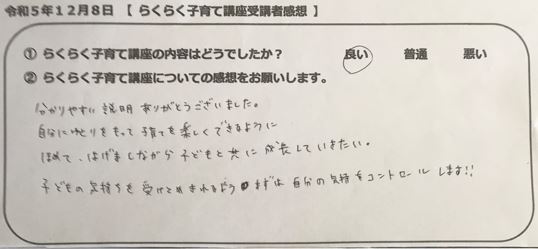 令和5年12月8日 【 らくらく子育て講座受講者感想 】
① らくらく子育て講座の内容はどうでしたか? 良い 普通 悪い
② らくらく子育て講座についての感想をお願いします。
分かりやすい説明ありがとうございました。
自分にゆとりをもって子育てを楽しくできるように
ほめて、はげましながら子どもと共に成長していきたい。
子どもの気持ちを受けとめきれるようまずは自分の気持をコントロールします!!